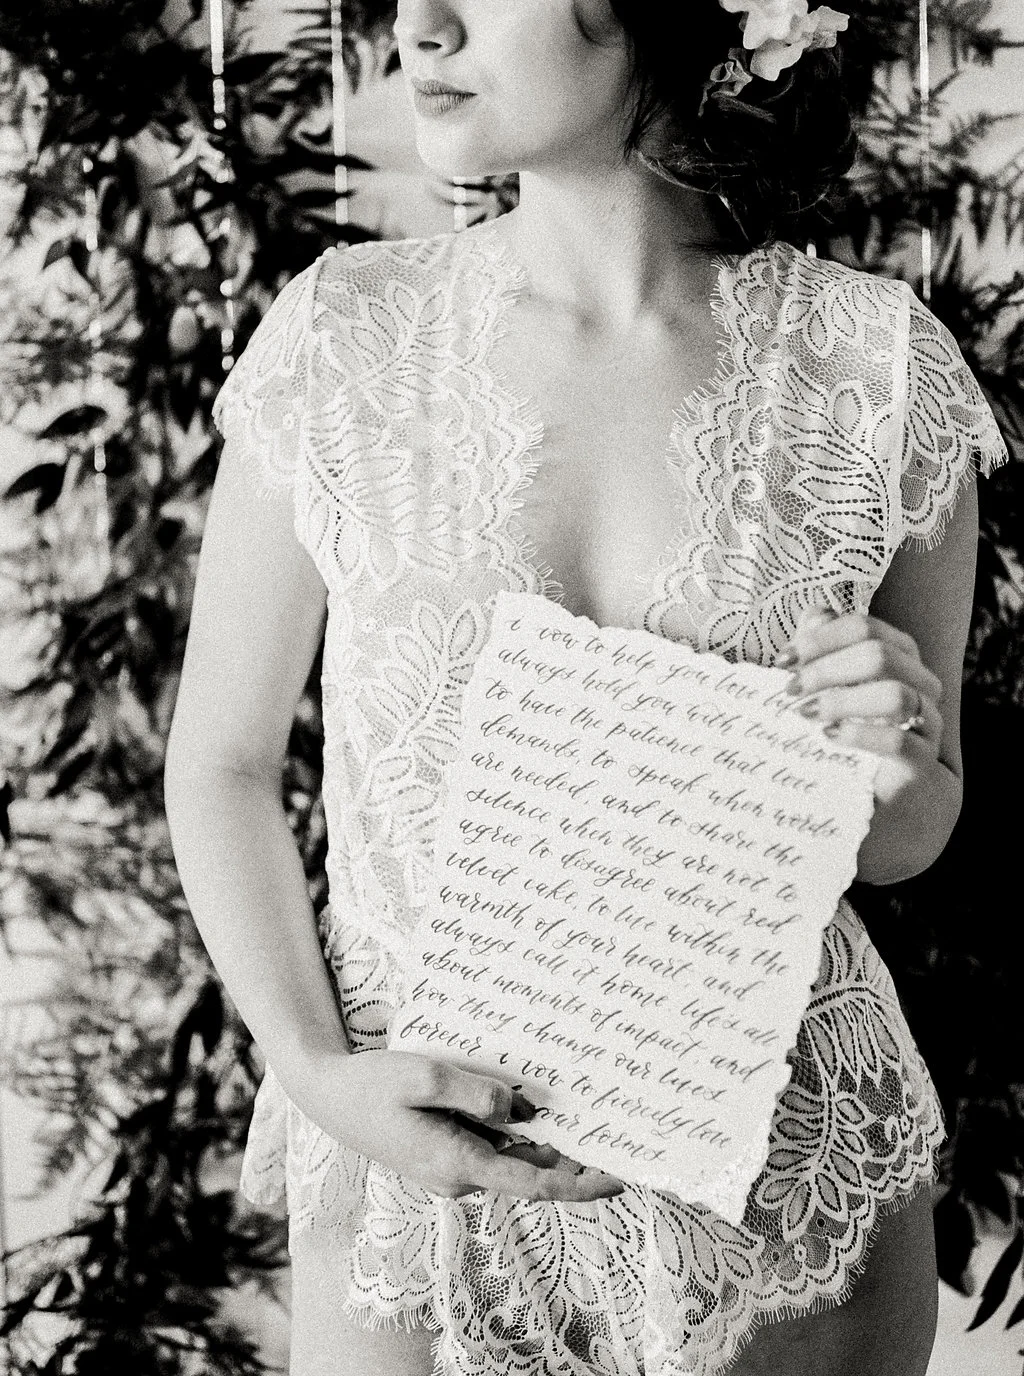 i vow to help you love life,
always hold you with tenderness
to have the patience that love
demands, to speak when words
are needed, and to share the
silence when they are not to
agree to disagree about red
velvet cake, to live within the
warmth of your heart, and
always call it home. life's all
about moments of impact, and
how they change our lives
forever i vow to fiercely love
your forms